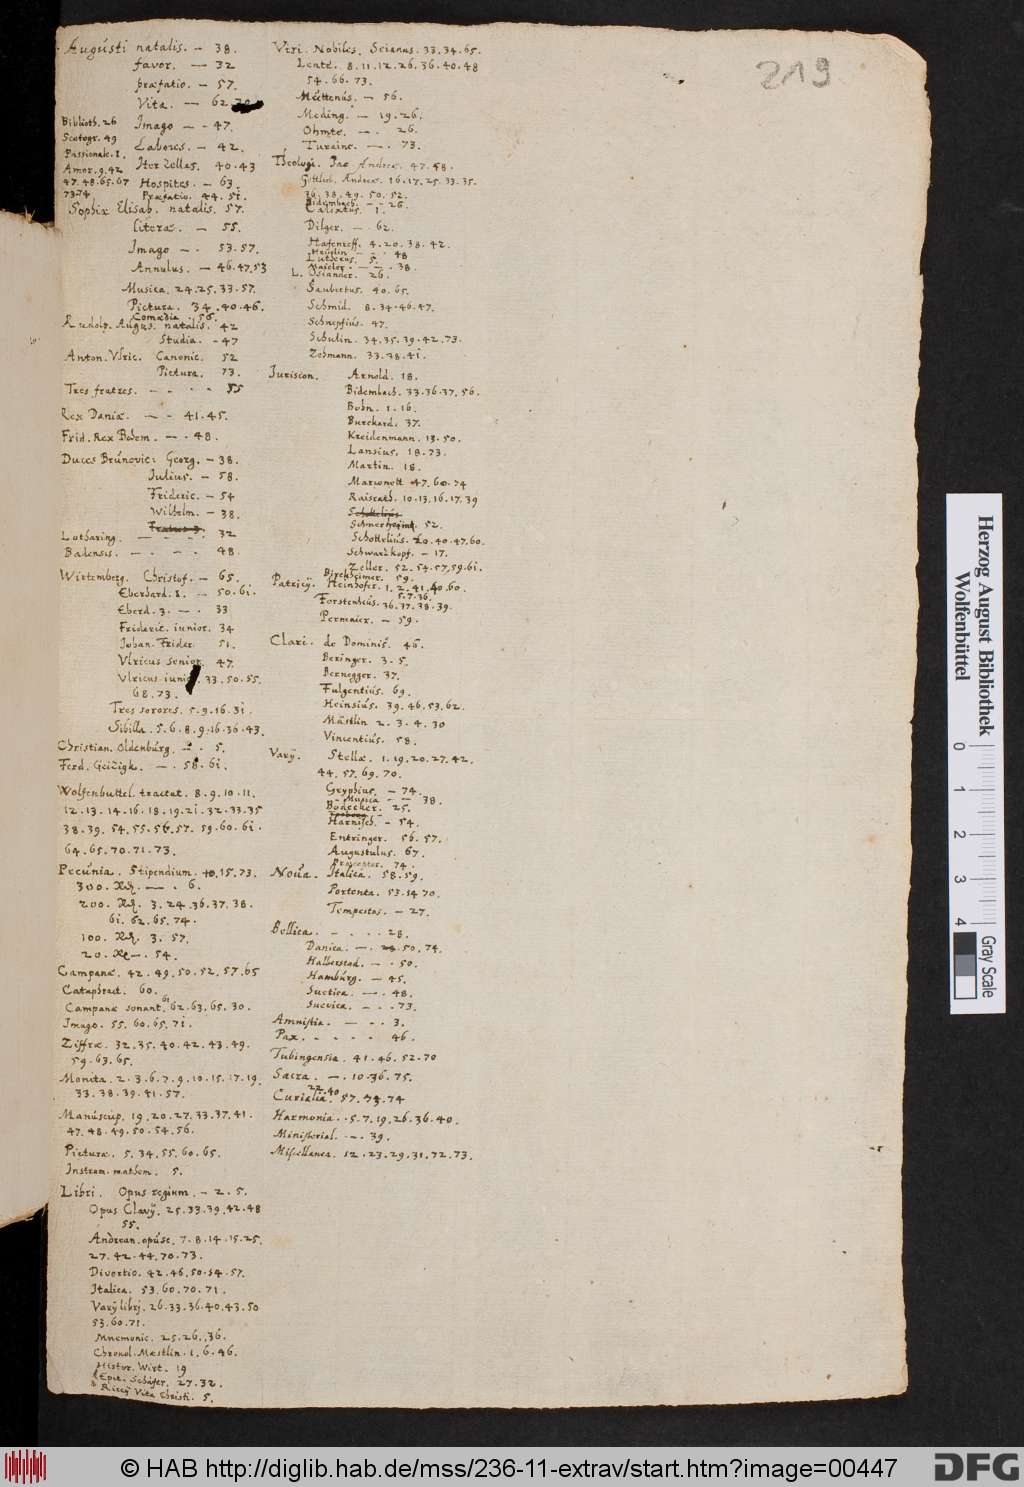 219
Augusti natalis. – 38.
favor. – 32
præfatio. – 57.
Vita. – 62
Biblioth. 26
Imago – - 47.
Scotogr. 49
Labores. – 42.
Passionale. 1.
Herzellas. 40.43
Amor. 9.42
47.48.65.67
Hospites. – 63.
73.74
Præfatio. 44.51.
Sophiæ Elisab. natalis. 57.
literæ. – 55.
Imago – . 53.57.
Annulus. – 46.47.53
Musica. 24.25.33.57.
Pictura. 34.40.46.
Comœdia. 56.
Rudolp. Augus. natalis. 42
Studia. - 47
Anton. Ulric. Canonic. 52
Pictura. 73.
Tres fratres. – - - - 55
Rex Daniæ. – - 41.45.
Frid. Rex Boem. – - 48.
Duces Brunovic: Georg. – 38.
Julius. – 58.
Frideric. – 54
Wilhelm. – 38.
Lotharing. – - - - 32
Badensis. – - – - 48.
Wirtemberg. Christof. – 65.
Eberhard. 1. – 50.61.
Eberd. 3. – . 33
Frideric. iunior. 34
Johan. Frider. 51.
Ulricus senior. 47.
Ulricus iunior. 33.50.55.
68.73.
Tres sorores. 5.9.16.31.
Sibilla. 5.6.8.9.16.36.43.
Christian. Oldenburg. – . 5.
Ferd. Geizigk. – . 58.61.
Wolfenbuttel. tractat. 8.9.10.11.
12.13.14.16.18.19.21.32.33.35
38.39.54.55.56.57.59.60.61.
64.65.70.71.73.
Pecunia. Stipendium. 10.15.73.
300. – . 6.
200. 3.24.36.37.38.
61.62.65.74.
100. 3.57.
20. –. 54.
Campanæ. 42.49.50.52.57.65
Cataphract. 60.
Campanæ sonant. 61 62.63.65.30.
Imago. 55.60.65.71.
Ziffræ. 32.35.40.42.43.49.
59.63.65.
Monita. 2.3.6.7.9.10.15.17.19.
33.38.39.41.57.
Manuscrip. 19.20.27.33.37.41.
47.48.49.50.54.56.
Picturæ. 5.34.55.60.65.
Instrum. mathem. 5.
Libri. Opus regium. – 2.5.
Opus Clavij. 25.33.39.42.48
55.
Andrean. opusc. 7.8.14.15.25.
27.42.44.70.73.
Divortio. 42.46.50.54.57.
Italica. 53.60.70.71.
Varij librj. 26.33.36.40.43.50
53.60.71.
Mnemonic. 25.26.36.
Chronol. Mæstlin. 1.6.46.
Histor. Wirt. 19
Epit. Schäfer. 27.32.
Riccij Vita Christi. 5.
Viri Nobiles. Scianus. 33.34.65.
Lente. 8.11.12.26.36.40.48
54.66.73.
Müttenus. – 56.
Meding. – 19.26.
Ohmte. – . 26.
Turaine. – . 73.
Theologi. Jac Andreæ. 47.48.
Gottlieb. Andreæ. 16.17.25.33.35.
36.38.49.50.52.
Bidembach. – - 26.
Calixtus. 1.
Dilger. – 62.
Hafenreff. 4.20.38.42.
48
Lutherus. 5.
– - – . 38.
L. Osiander. 26.
Saubertus. 40.65.
Schmid. 8.34.46.47.
Schnepfius. 47.
Schulin. 34.35.39.42.73.
Zehmann. 33.38.41.
Juriscon. Arnold. 18.
Bidembach. 33.36.37.56.
Bohn. 1.16.
Burckard. 37.
Kreidenmann. 13.50.
Lansius. 18.73.
Martin. 18.
47.60.74
Raisrath. 10.13.16.17.39
52.
Schottelius. 20.40.47.60.
Schwartzkopf. – 17.
Zeller. 52.54.57.59.61.
Birckheimer. 59.
Patricij. Heinhofer. 1.2.41.60.60.
5.7.36.
Forstenheus. 36.37.38.39.
Permaier. – 59.
Clari. de Dominis. 46.
Beringer. 3.5.
Bernegger. 37.
Fulgentius. 69.
Heinsius. 39.46.53.62.
Mästlin 2.3.4.30
Vincentius. 58.
Varij. Stellæ. 1.19.20.27.42.
44.57.69.70.
Gryphius. – 74.
Musica – – 38.
Bödecker. 25.
Harnisch. – 54.
Entringer. 56.57.
Augustulus. 67.
Præceptor. 74.
Noua. Italica. 58.59.
Portenta. 53.54 70.
Tempestas. – 27.
Bellica. – . – . 28.
Danica. – . 28.50.74.
Halberstad. – - 50.
Hamburg. – 45.
Suetica. – . 48.
Suevica. – - - 73.
Amnistia. – - - 3.
Pax. – - - - 46.
Tubingensia. 41.46.52.70
Sacra. – . 10.36.75.
22.40
Curialia. 57.74.74
Harmonia. . 5.7.19.26.36.40.
Ministerial. – . 39.
Miscellanea. 12.23.29.31.72.73.
Herzog August Bibliothek
Wolfenbüttel
0 1 2 3 4
Gray Scale
© HAB http://diglib.hab.de/mss/236-11-extrav/start.htm?image=00447
DFG